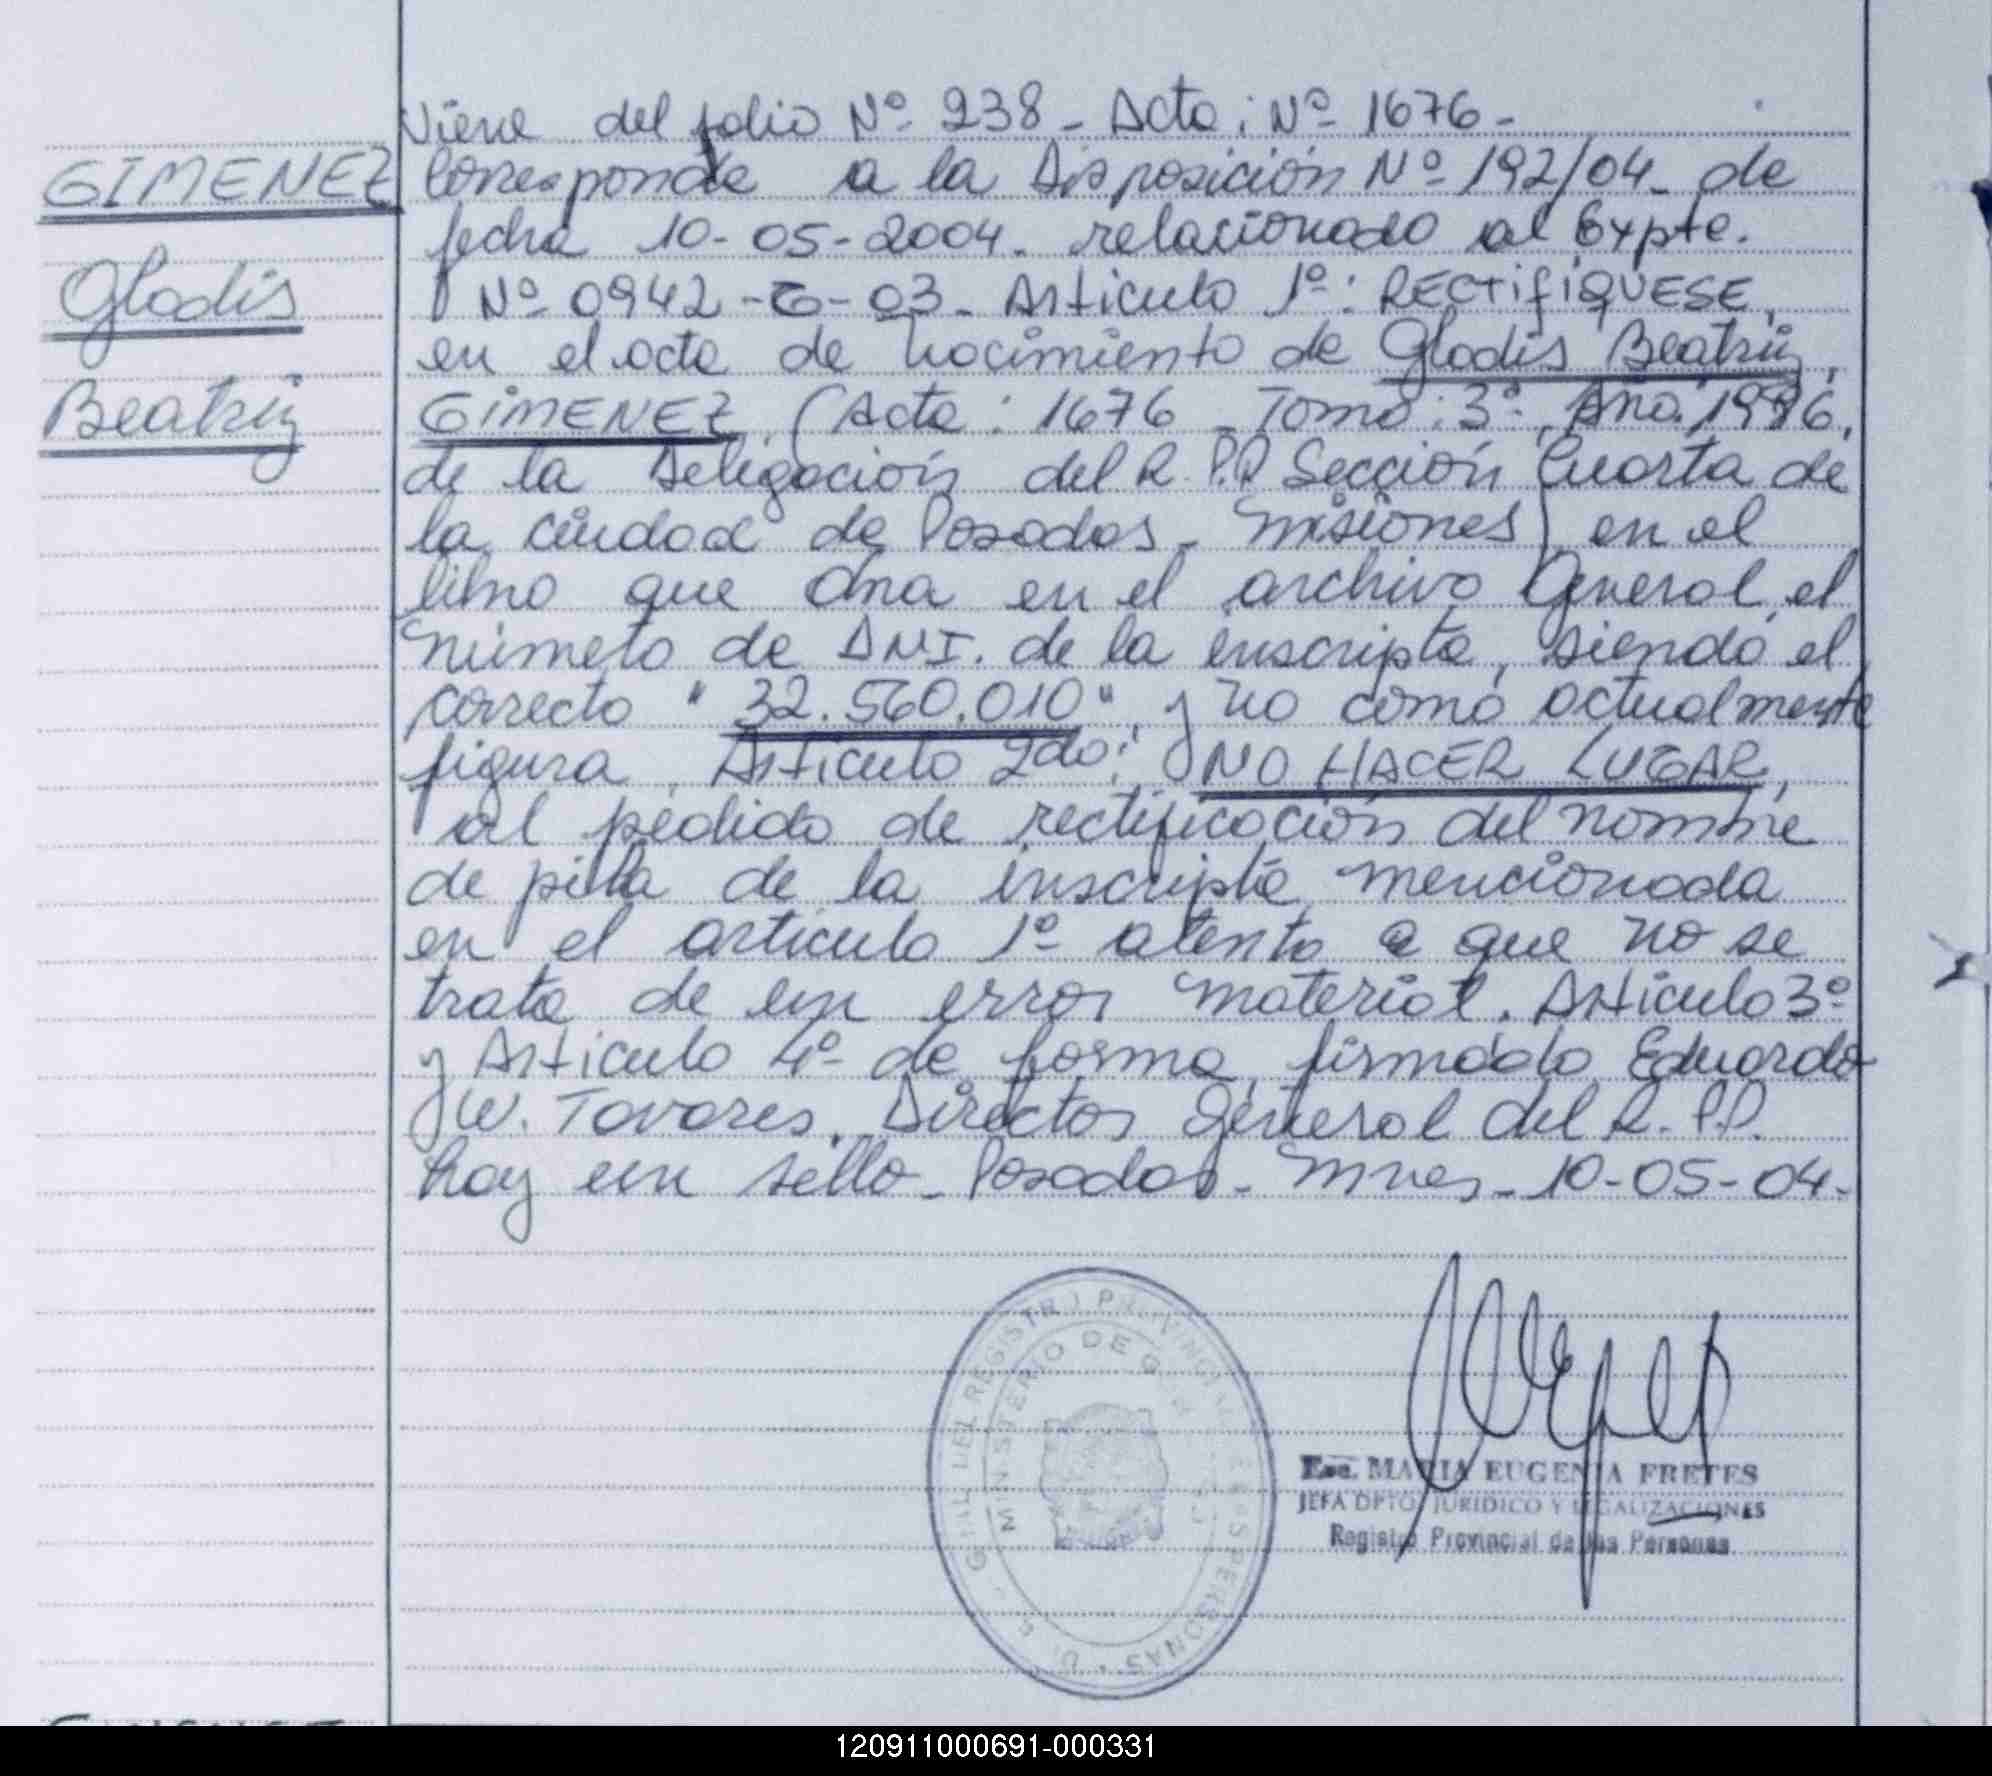 Viene del folio Nº 238 - Acta: Nº 1676 -
GIMENEZ
Corresponde a la Disposición Nº 192/04 - de
fecha 10-05-2004 - relacionado al Expte.
Gladis
Nº 0942 - G - 03 - Articulo 1º: RECTIFIQUESE,
en el acta de nacimiento de Gladis Beatriz,
Beatriz
GIMENEZ, (Acta: 1676 - Tomo: 3º, Año: 1986,
de la Delegación del R.P.P Sección Cuarta de
la ciudad de Posadas - Misiones) en el
libro que obra en el archivo General, el
número de DNI. de la inscripta, siendo el
correcto " 32.560.010 " y no como actualmente
figura. Articulo 2do: NO HACER LUGAR,
al pedido de rectificación del nombre
de pila de la inscripta mencionada
en el articulo 1º atento a que no se
trata de un error material. Articulo 3º
y Articulo 4º de forma, firmado Eduardo
W. Tavares. Director General del R.P.P.
hay un sello - Posadas - Mnes - 10-05-04 -
MINISTERIO DE
REGISTRO PROVINCIAL DE LAS PERSONAS
Esc. MARIA EUGENIA FRETES
JEFA DPTO. JURIDICO Y LEGALIZACIONES
Registro Provincial de las Personas
120911000691-000331